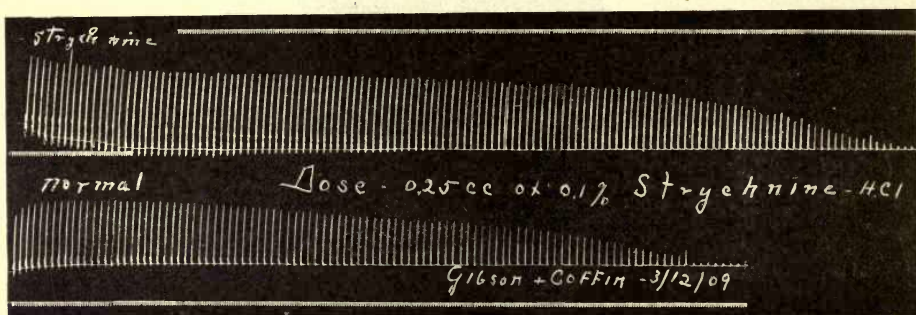 strychnine
normal Dose - 0.25 cc of 0.1% Strychnine-HCl
Gibson + Coffin - 3/12/09